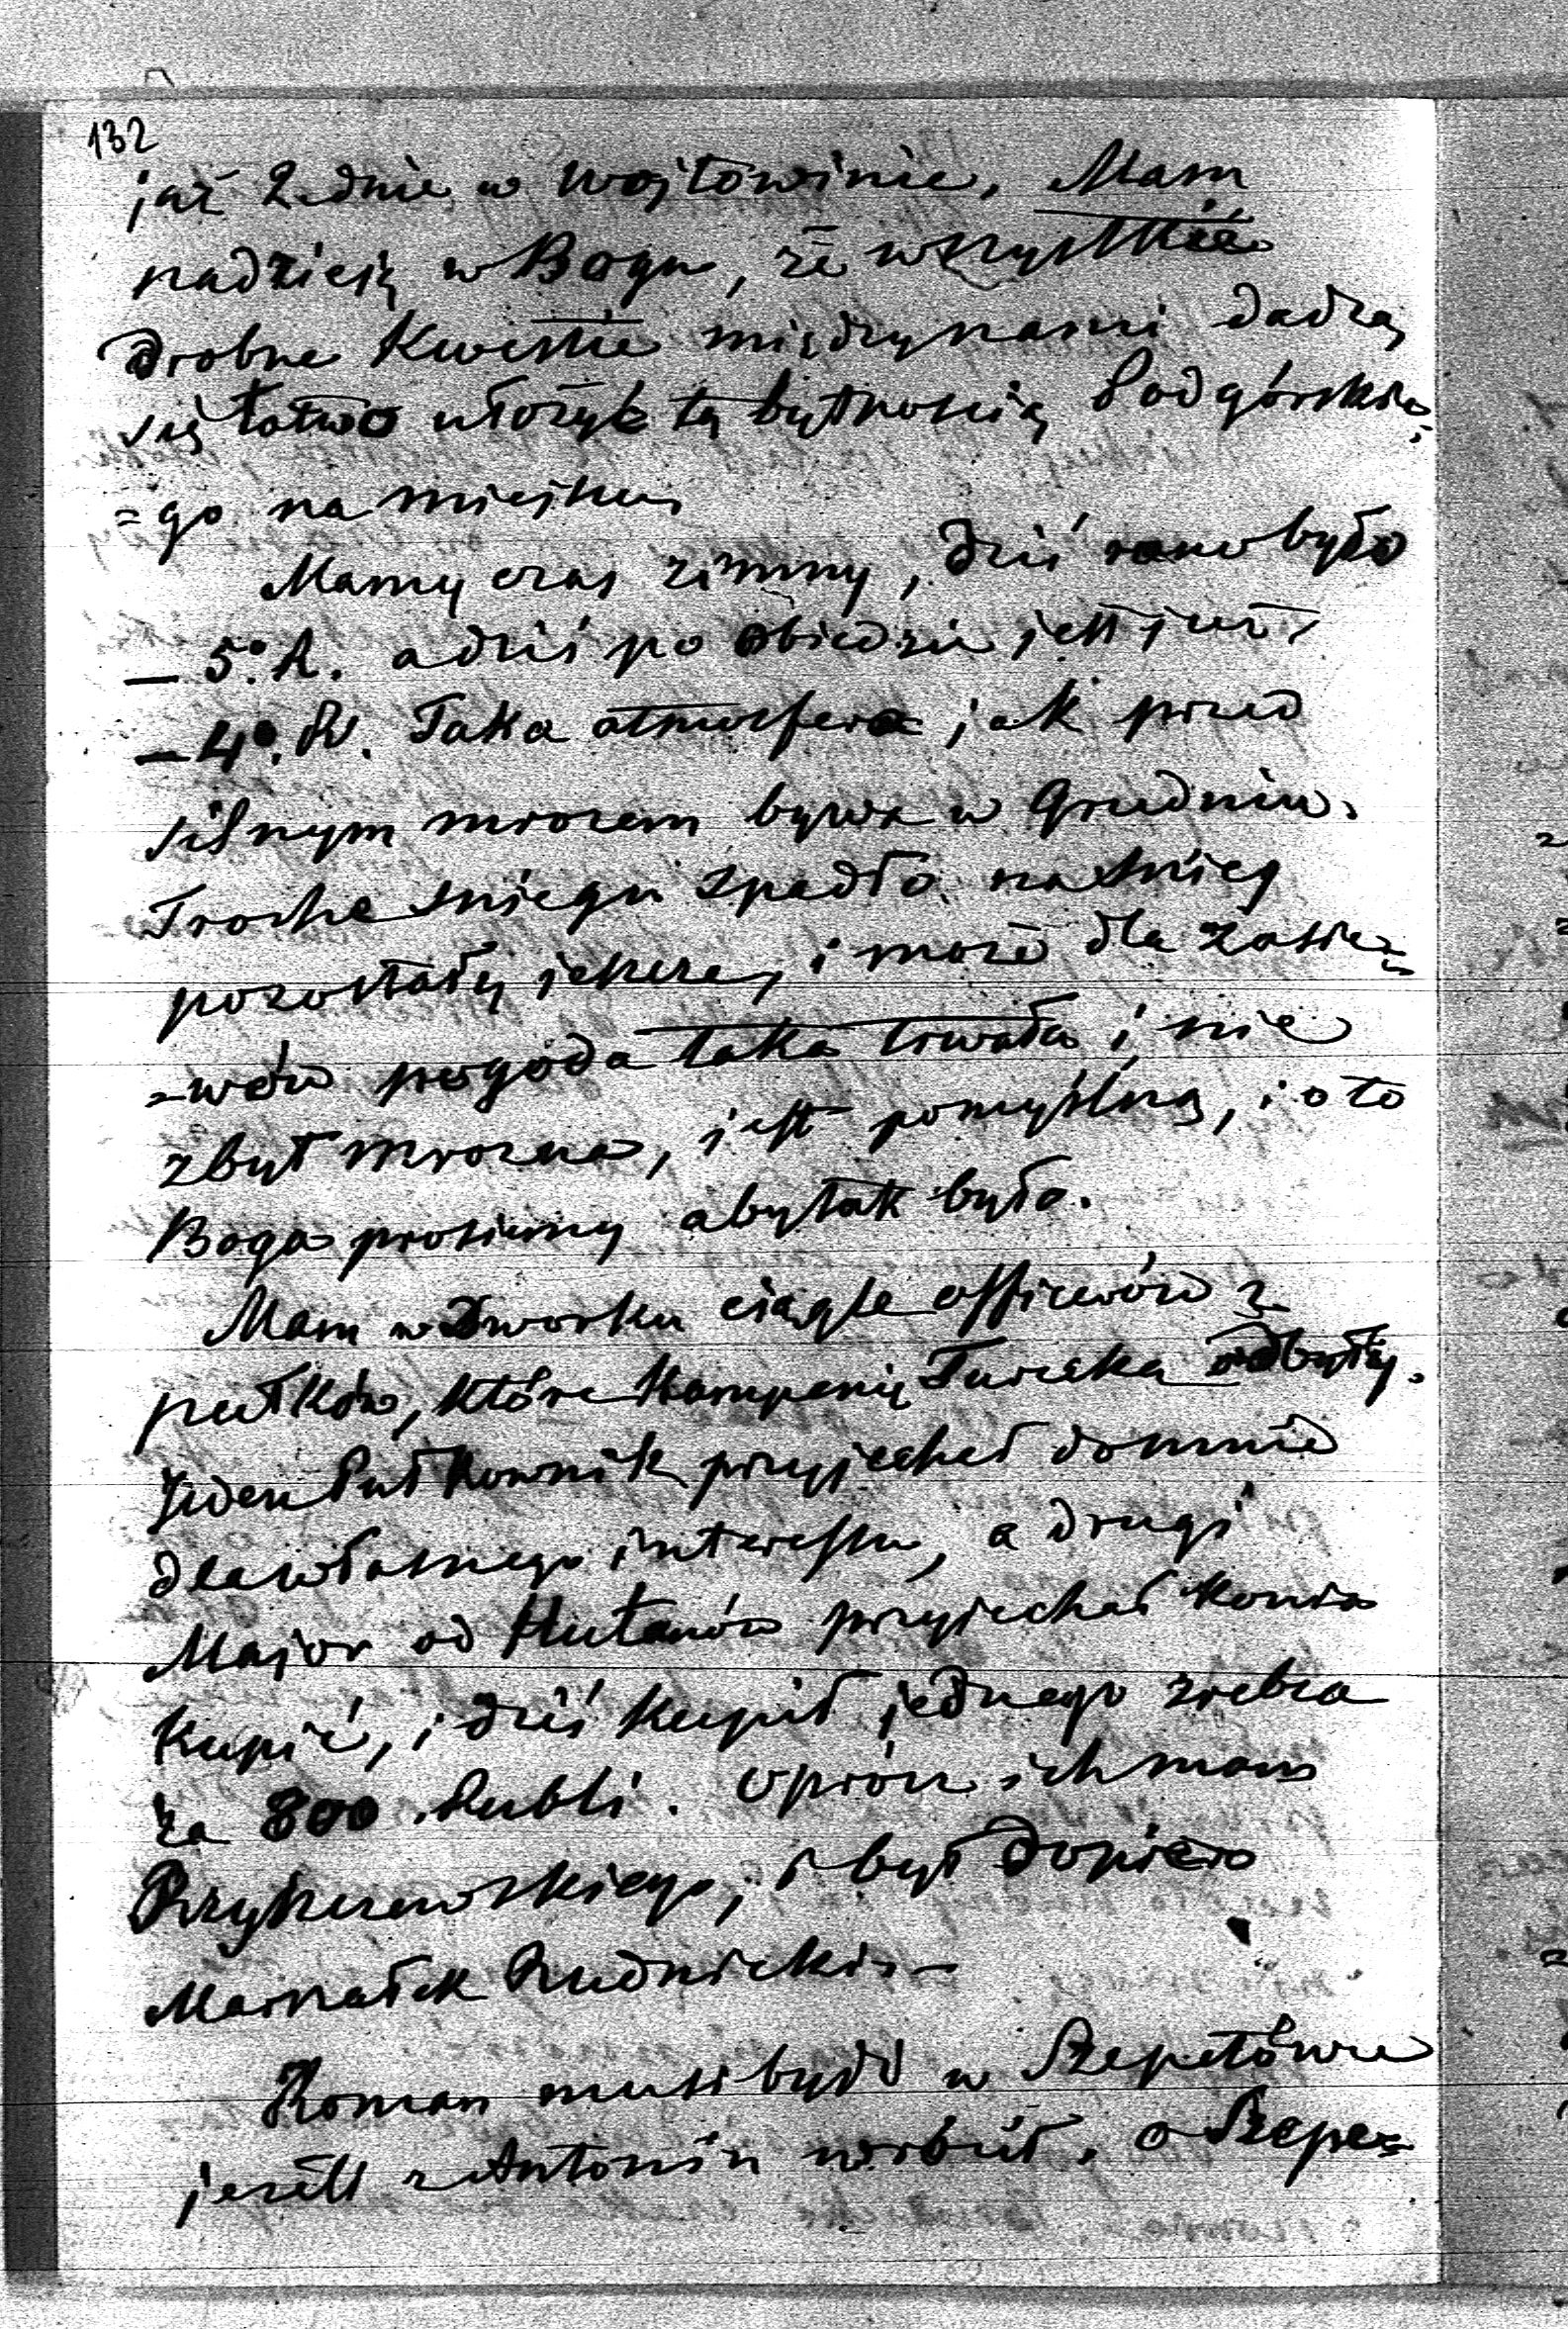 132
już 2 dnie w Wojtowinie. Mam
nadzieję w Bogu, że wszystkie
drobne kwestie między nami dadzą
się łatwo ułożyć tą bytnością Podgórskie=
=go na miejscu
Mamy czas zimny, dziś rano było
— 5°. R. a dziś po obiedzie jest już
— 4°. R. Taka atmosfera jak przed
silnym mrozem bywa w Grudniu.
Troche sniegu spadło na snieg
pozostały jeszcze, i może dla zasie=
=wów pogoda taka trwała i nie
zbyt mrozna, jest pomyślną, i o to
Boga prosiemy aby tak było.
Mam w Dworku ciągle officerów z
pułków, które Kampanię Turecka odbyły.
Jeden Pułkownik przyjechał do mnie
dla własnego interessu, a drugi
Major od Hułanów przyjechał Konia
Kupić, i dziś kupił jednego zrebca
za 800 Rubli. Oprócz ich mam
i był dopiero
Marszałek Rudnicki. —
Roman musi bydź w Szepetówce
jeżeli z Antonin wrócił. O Szepe=